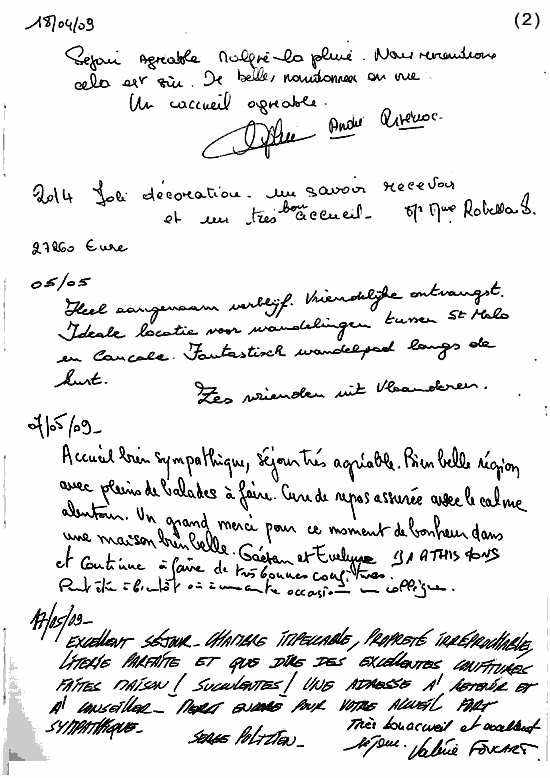 18/04/09
(2)
Séjour agréable malgré la pluie. Nous reviendrons
cela est sûr. De belles randonnées en vue.
Un accueil agréable.
André
20/4 Joli décoration. un savoir recevoir
et un très bon accueil - Mr Mme
27260 Eure
05/05
Heel aangenaam verblijf. Vriendelijke ontvangst.
Ideale locatie voor wandelingen tussen St Malo
en Cancale. Fantastisch wandelpad langs de
kust.
Zes vrienden uit Vlaanderen.
07/05/09_
Accueil bien sympathique, séjour très agréable. Bien belle région
avec pleins de balades à faire. Cure de repos assurée avec le calme
alentour. Un grand merci pour ce moment de bonheur dans
une maison bien belle. Gaëtan et Evelyne 91 ATHIS MONS
et continue à faire de très bonnes confitures.
Peut être à bientôt où à une autre occasion
17/05/09_
EXCELLENT SÉJOUR_ CHAMBRE IMPECCABLE, PROPRETÉ IRRÉPROCHABLE,
LITERIE PARFAITE ET QUE DIRE DES EXCELLENTES CONFITURES
FAITES MAISON! SUCCULENTES! UNE ADRESSE A' RETENIR ET
A' CONSEILLER_ MERCI ENCORE POUR VOTRE ACCUEIL FORT
SYMPATHIQUE_
Très bon accueil et excellent
SERGE
séjour. Valérie FOUCART